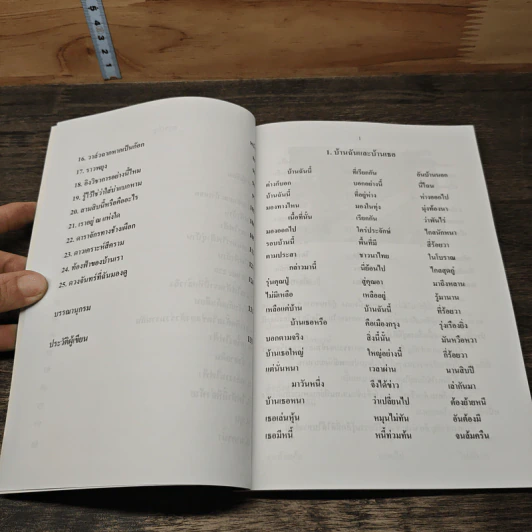 5
4
3
2
1
16. วาสำอางหากเป็นก้อก
17. ราวพฤง
18. อิงวิชาการอย่างนี้ไหม
19. รู้ไว้ใช่ว่าใส่บ่าแบกหาม
20. สามสิบนี้หรือคืออะไร
21. เราอยู่ ณ แห่งใด
22. ดาราจักรทางช้างเผือก
23. ดาวเคราะห์สีคราม
24. ท้องฟ้าของบ้านเรา
25. ดวงจันทร์ที่ฉันมองดู
บรรณานุกรม
ประวัติผู้เขียน
1
1. บ้านฉันและบ้านเธอ
บ้านฉันนี้ ที่เรียกกัน อันบ้านนอก
บ้านฉันนี้ ที่อยู่ห่าง ห่างออกไป
มองทางไหน มองในทุ่ง
เนื้อที่นั้น เรียกกัน ว่าพันไร่
มองออกไป ใครประจักษ์ ไกลนักหนา
รอบบ้านนี้ พื้นที่มี กี่ร้อยวา
ตามประสา ชาวนาไทย ในโบราณ
กล่าวมานี้ นี่ย้อนไป ไกลสุดกู่
รุ่นคุณปู่ สู่คุณอา มาถึงหลาน
ไม่มีเหลือ เหลืออยู่ รู้มานาน
เหลือแต่บ้าน บ้านฉันนี้ กี่ร้อยวา
บ้านเธอหรือ คือเมืองกรุง รุ่งเรืองยิ่ง
บอกตามจริง สิ่งนี้นั้น มันหวือหวา
บ้านเธอใหญ่ ใหญ่อย่างนี้ กี่ร้อยวา
แต่นั่นหนา เวลาผ่าน นานสิบปี
มาวันหนึ่ง จึงได้ข่าว เล่ากันมา
บ้านเธอหนา ว่าเปลี่ยนไป ต้องย้ายหนี
เธอเล่นหุ้น หมุนไม่ทัน อันต้องมี
เธอมีหนี้ หนี้ท่วมท้น จนล้มครืน